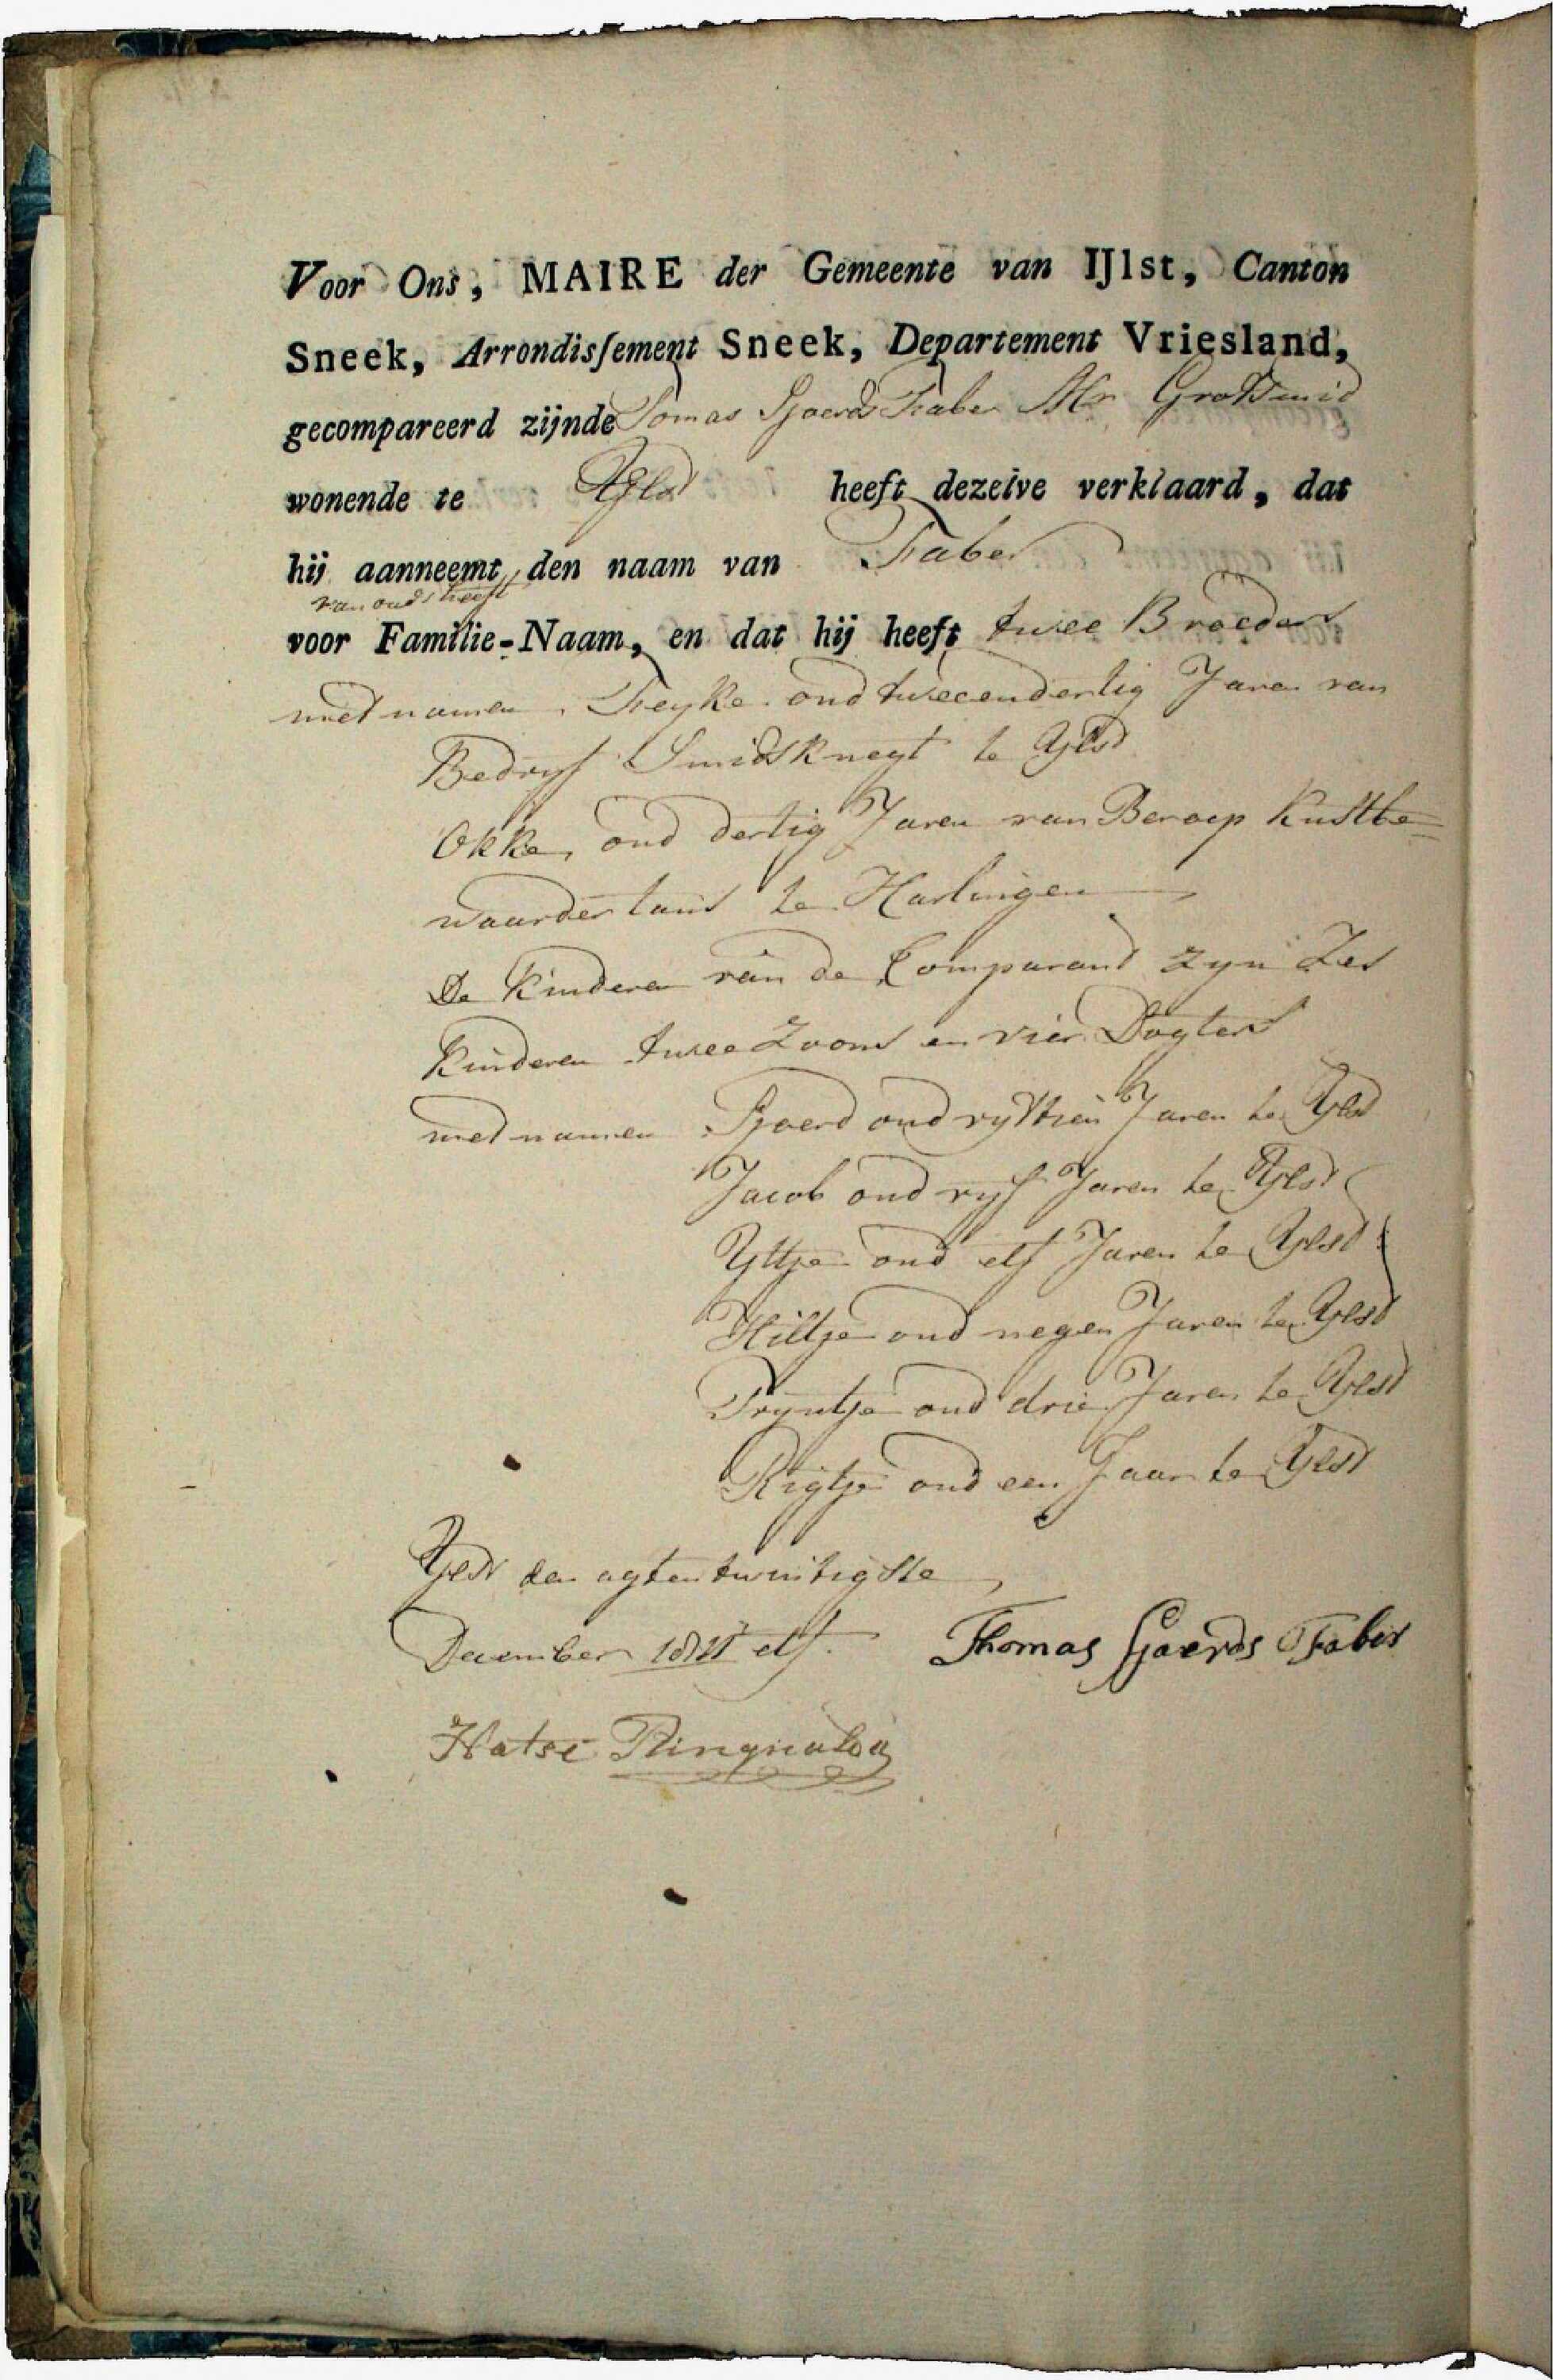 Voor Ons, MAIRE der Gemeente van IJlst, Canton
Sneek, Arrondisſement Sneek, Departement Vriesland,
gecompareerd zijnde Tomas Sjoerds Faber Mr Grofsmid
wonende te Ylst heeft dezelve verklaard, dat
hij aanneemt, den naam van Faber
van ouds heeft
voor Familie-Naam, en dat hij heeft twee Broeders
met namen Feyke oud tweeendertig Jaren van
Bedryf Smidsknegt te Ylst
Okke, oud dertig Jaren van Beroep Kustbe=
waarder te Harlingen
De Kinderen van de Comparant zyn Zes
Kinderen twee Zoons en vier Dogters
met namen Sjoerd oud vyftien Jaren te Ylst
Jacob oud vyf Jaren te Ylst
Yttje oud elf Jaren te Ylst
Hiltje oud negen Jaren te Ylst
Tryntje oud drie Jaren te Ylst
Rigtje oud een Jaar te Ylst
Ylst den agtentwintigste
December 1811 elf. Thomas Sjoerds Faber
Hatse